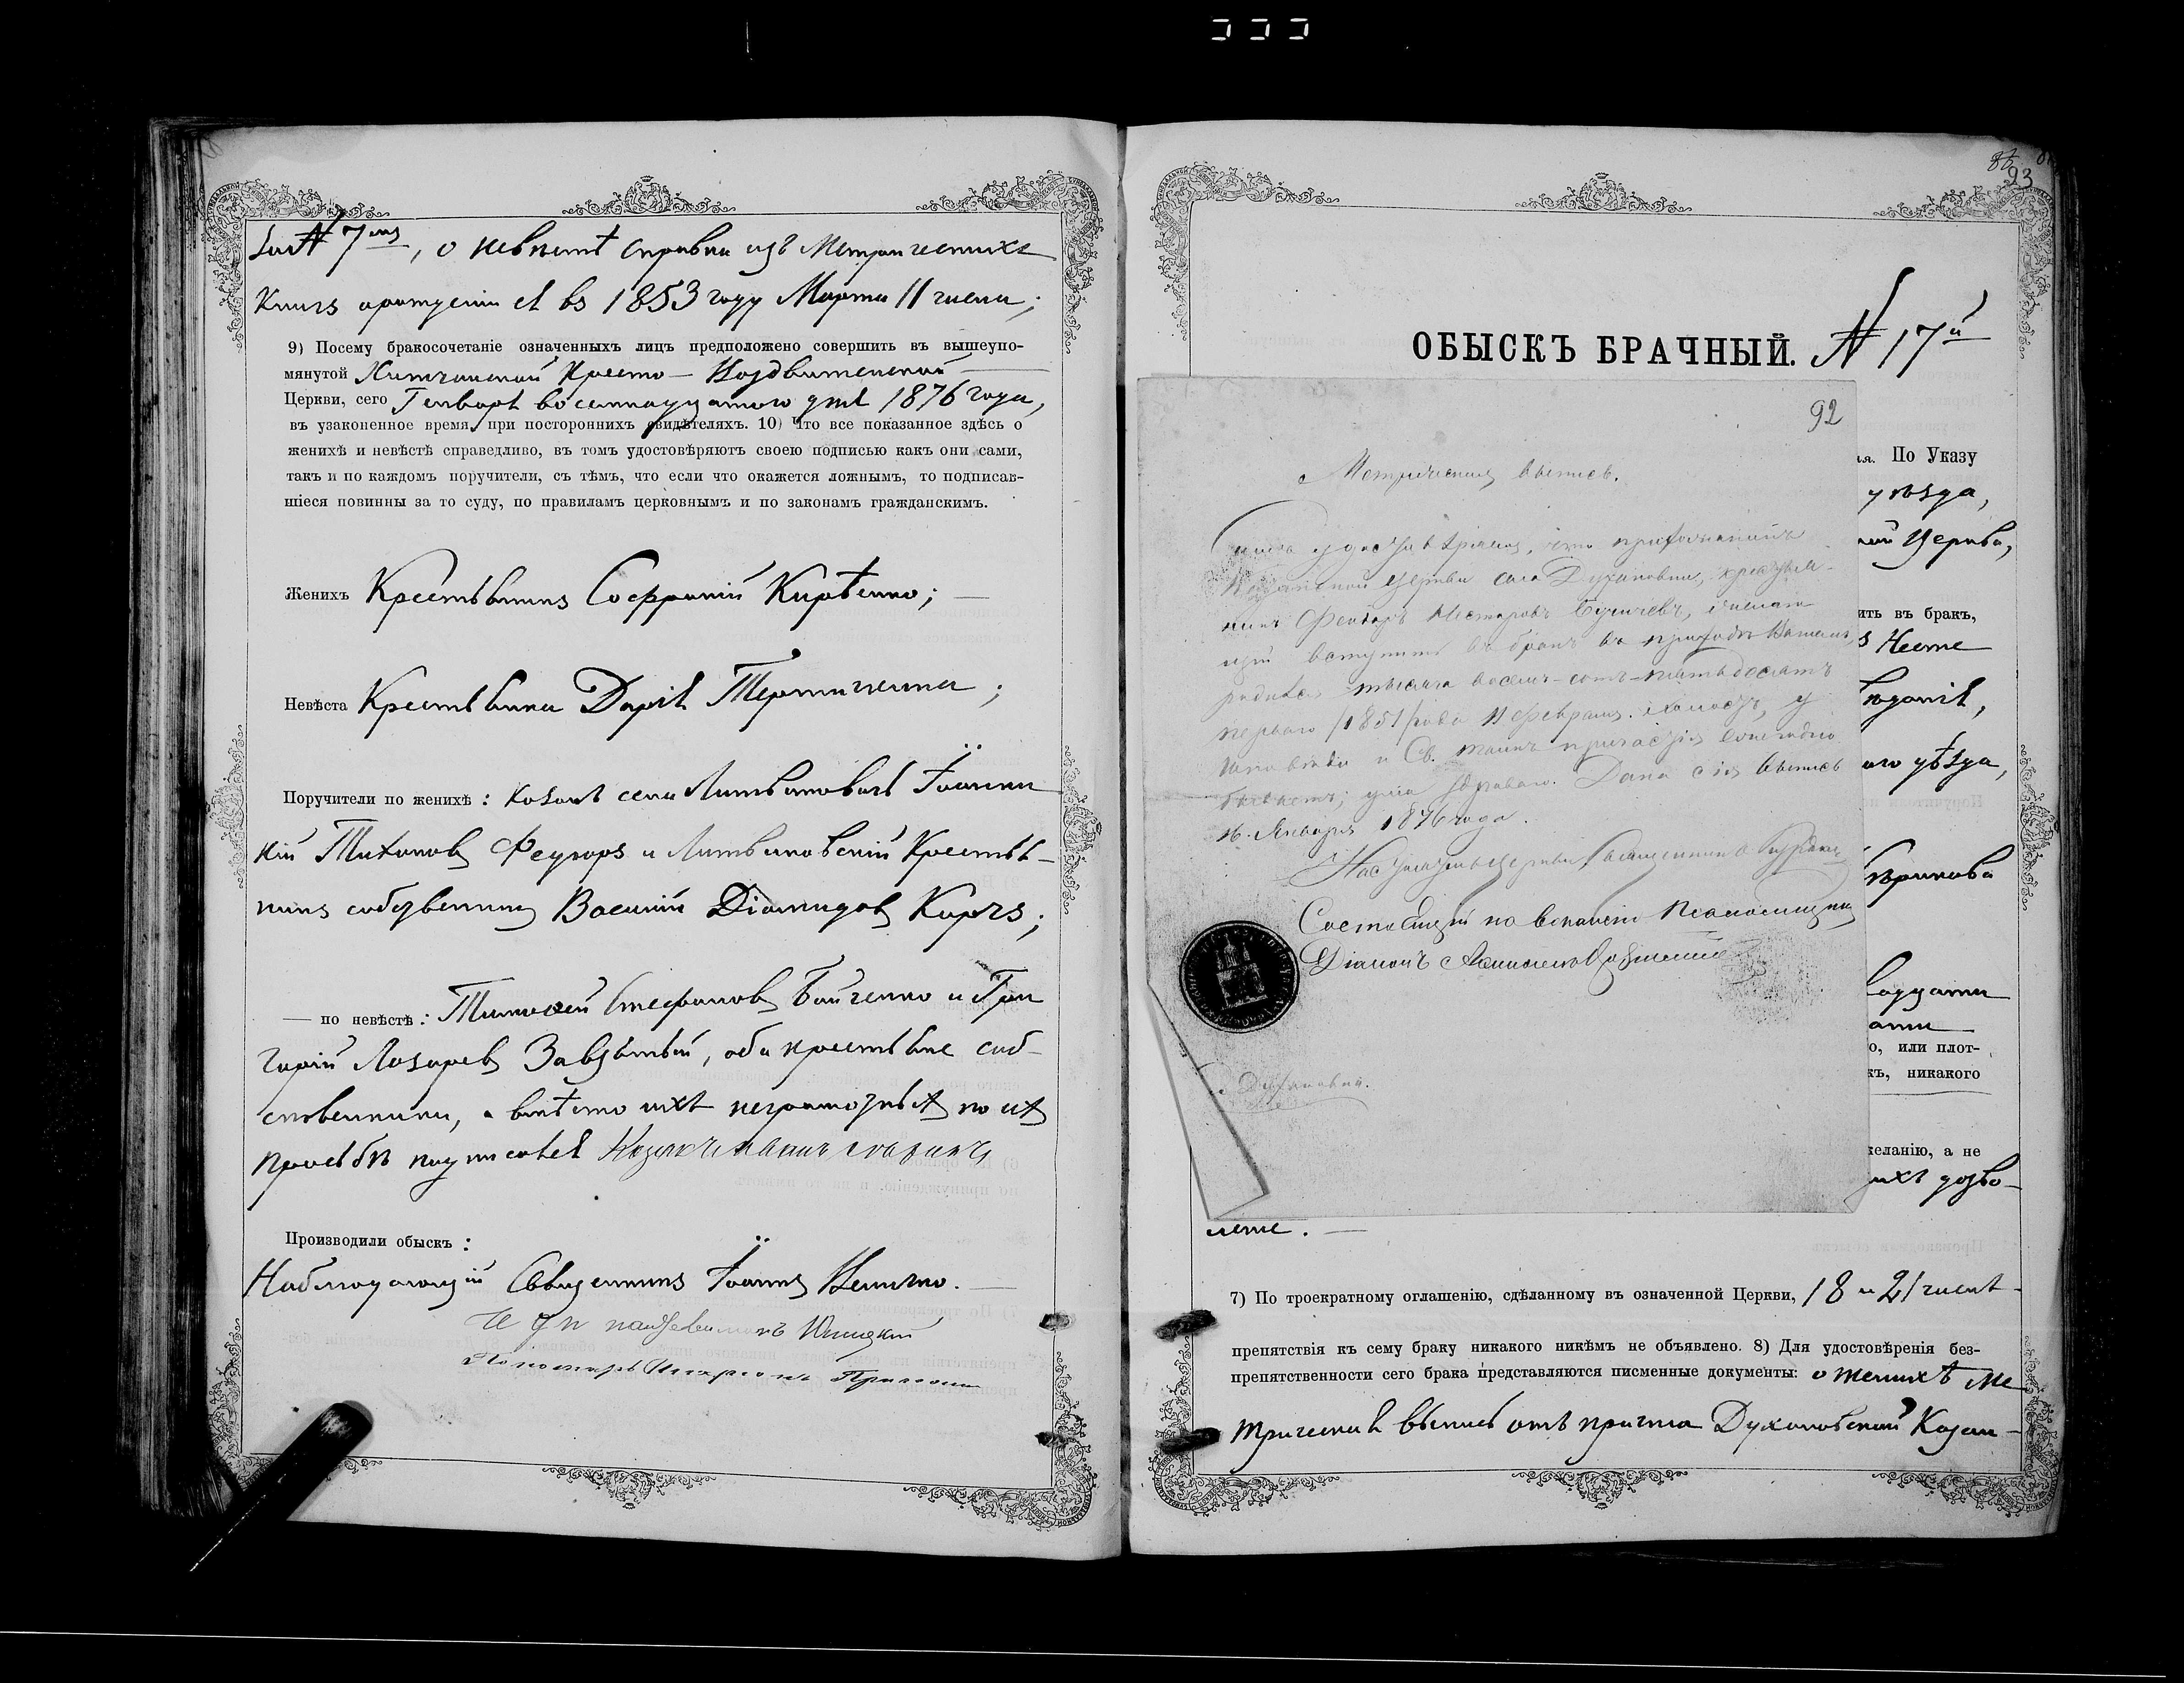 за № 7мъ, о невѣстѣ справка изъ Метрическихъ
Книгъ орожденіи ея въ 1853 году Марта 11 числа;
9) Посему бракосочетаніе означенныхъ лицъ предположено совершить въ вышеупо-
мянутой Кресто-Воздвиженской
Церкви, сего Генваря восемнадцатого дня 1876 года,
въ узаконенное время, при постороннихъ свидѣтеляхъ. 10) Что все показанное здѣсь о
женихѣ и невѣстѣ справедливо, въ томъ удостовѣряютъ своею подписью какъ они сами,
такъ и по каждомъ поручители, съ тѣмъ, что если что окажется ложнымъ, то подписав-
шіеся повинны за то суду, по правиламъ церковнымъ и по законамъ гражданскимъ.
Женихъ Крестьянинъ Софроній Кирѣенко;
Невѣста Крестьянка Дарія
Поручители по женихѣ: козакъ села
кій Тихоновъ Федоръ и Литвиновскій Крестья-
нинъ собственникъ Василій Діомидовъ Коржъ;
— по невѣстѣ: Тимофей Стефановъ Бойченко и Гри
горій Лазаревъ Завзятый, оба крестьяне соб-
ственники, а вмѣсто ихъ неграмотныхъ по их
просьбѣ подписался Козакъ
Производили обыскъ:
Наблюдающій Священникъ Іоаннъ
И д п
Пономарь
93
ОБЫСКЪ БРАЧНЫЙ. № 17й
92
Метрическая выпись.
Симъ удостовѣряемъ, что прихожанинъ
Казанской церкви села Духановки, крестья-
нинъ Феодоръ Несторовъ желаю-
щій вступить въ бракъ въ приходѣ Вашемъ,
родился тысяча восемь-сотъ-пятьдесятъ
перваго /1851/ года 11 февраля. холостъ, у
исповѣди и Св. таинъ причастія ежегодно
бываетъ; ума здраваго. Дана сія выпись
16 Января 1876 года.
Настоятель церкви священникъ
Состоящій на вакансіи Псаломщика
Діаконъ
Духановка.
ія. По Указу
уѣзда,
ой Церкви,
ить въ бракъ,
ъ Несте
ого уѣзда,
о, или плот-
къ, никакого
желанію, а не
ихъ дозво-
леніе.
7) По троекратному оглашенію, сдѣланному въ означенной Церкви, 18 и 21 числа
препятствія къ сему браку никакого никѣмъ не объявлено. 8) Для удостовѣренія без-
препятственности сего брака представляются писменные документы: о женихѣ Ме
трическая выпись отъ причта Духановской Казан-